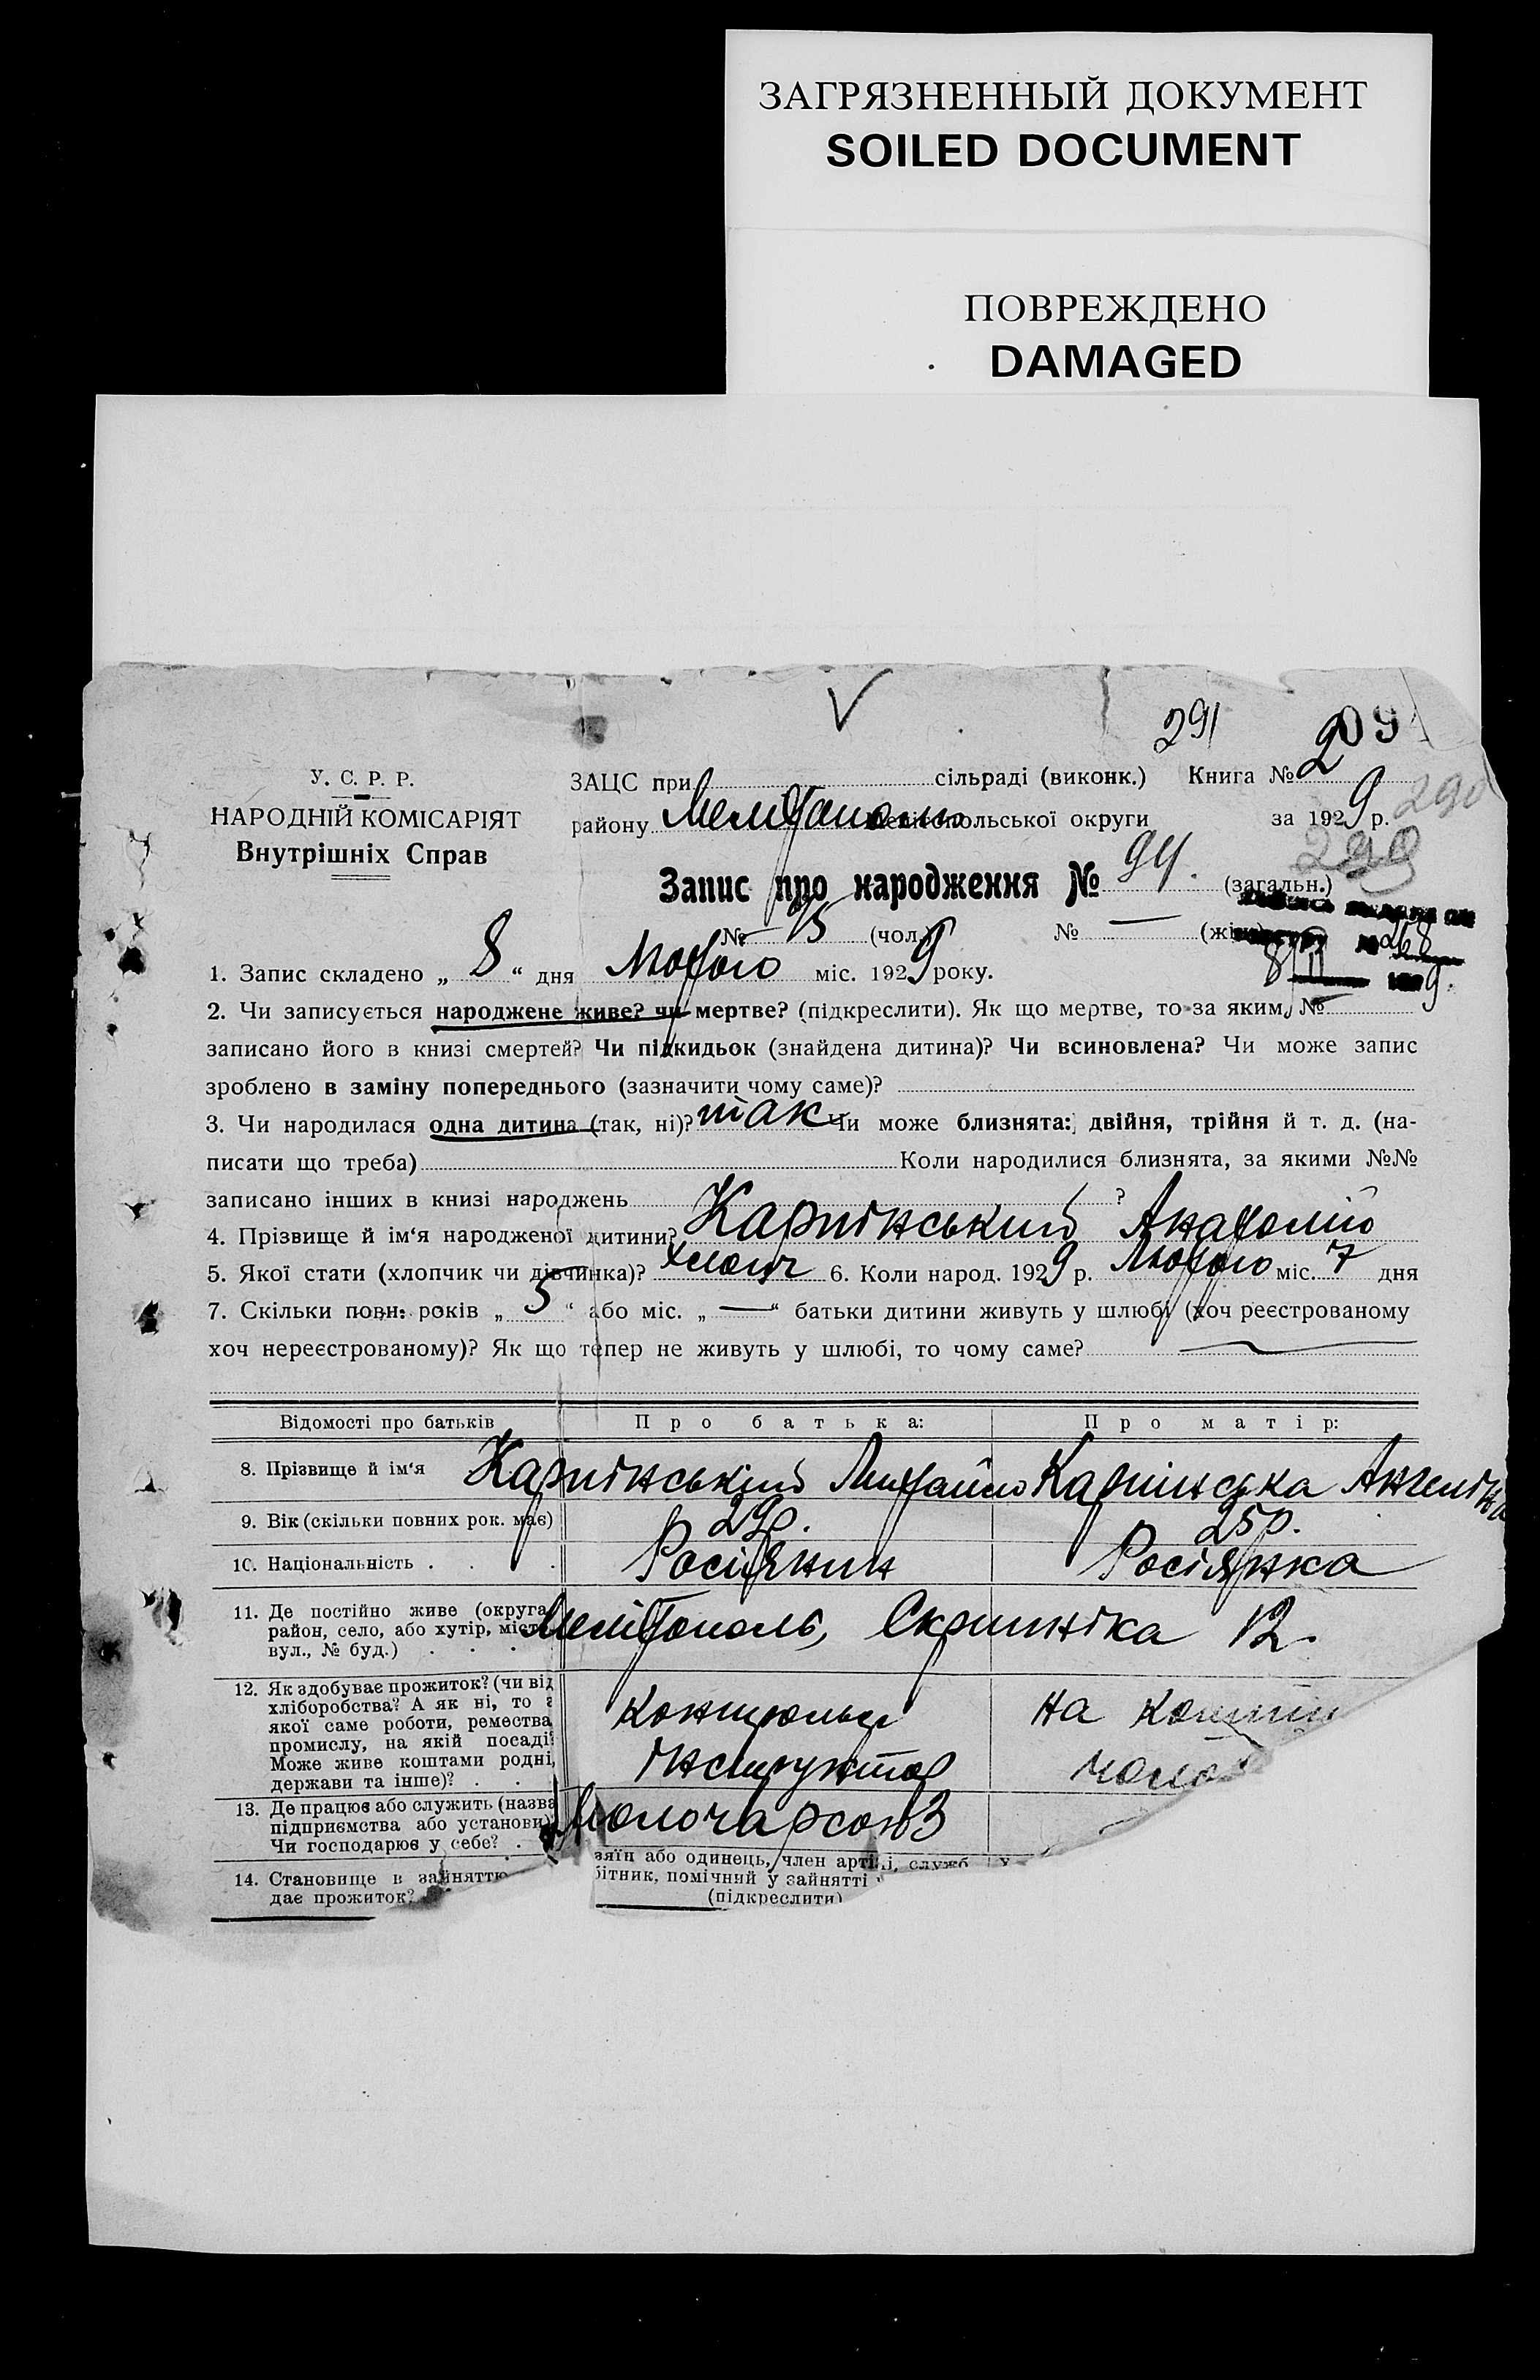 ЗАГРЯЗНЕННЫЙ ДОКУМЕНТ
SOILED DOCUMENT
ПОВРЕЖДЕНО
DAMAGED
291 209
У. С. Р. Р.
НАРОДНІЙ КОМІСАРІЯТ
Внутрішніх Справ
ЗАЦС при сільраді (виконк.) Книга № 2
району Мелітополь опольської округи за 1929 р. 290
290
Запис про народження № 94. (загальн.)
№ 15 (чол.) № — (жін
8 II 9.
1. Запис складено „ 8 “ дня Лютого міс. 1929 року.
2. Чи записується народжене живе? чи мертве? (підкреслити). Як що мертве, то за яким №
записано його в книзі смертей? Чи підкидьок (знайдена дитина)? Чи всиновлена? Чи може запис
зроблено в заміну попереднього (зазначити чому саме)?
3. Чи народилася одна дитина (так, ні)? так Чи може близнята: двійня, трійня й т. д. (на-
писати що треба) Коли народилися близнята, за якими №№
записано інших в книзі народжень ?
4. Прізвище й ім‘я народженої дитини? Карпінський Анатолій
5. Якої стати (хлопчик чи дівчинка)? хлопч 6. Коли народ. 1929 р. Лютого міс. 7 дня
7. Скільки повн: років „ 5 “ або міс. „ — “ батьки дитини живуть у шлюбі (хоч реєстрованому
хоч нереєстрованому)? Як що тепер не живуть у шлюбі, то чому саме?
Відомості про батьків Про батька: Про матір:
8. Прізвище й ім‘я Карпінський Михайло Карпинська Ангеліна
9. Вік (скільки повних рок. має) 29р. 25р.
10. Національність . . . Росіянин Росіянка
11. Де постійно живе (округа
район, село, або хутір, міст
вул., № буд.) . . .
Мелітополь, Скрипніка 12.
12. Як здобуває прожиток? (чи від
хліборобства? А як ні, то з
якої саме роботи, ремества
промислу, на якій посаді?
Може живе коштами родні,
держави та інше)? . .
контрольн на кошти
Інструктор чолов
13. Де працює або служить (назва
підприємства або установи)
Чи господарює у себе? .
Молочарсоюз
14. Становище в зайняттю
дає прожиток?
зяїн або одинець, член артілі, служб
бітник, помічний у зайнятті
(підкреслити)